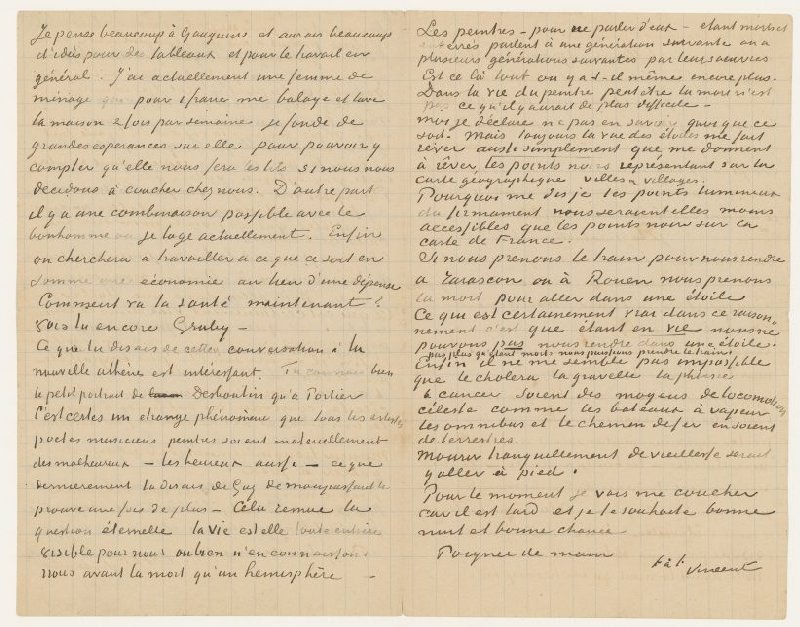 Je pense beaucoup à Gauguin et aurais beaucoup
d'idées pour des tableaux et pour le travail en
général. J'ai actuellement une femme de
ménage qui pour 1 franc me balaye et lave
la maison 2 fois par semaine je fonde de
grandes esperances sur elle pour pouvoir y
compter qu'elle nous fera les lits si nous nous
decidons à coucher chez nous. D'autre part
il y a une combinaison possible avec le
bonhomme où je loge actuellement. Enfin
on cherchera à travailler à ce que ce soit en
somme une économie au lieu d'une dépense
Comment va la santé maintenant?
vois tu encore Gruby –
Ce que tu disais de cette conversation à la
nouvelle athène est intéressant. Tu connais bien
le petit portrait de Desboutin qu'a Portier
C'est certes un étrange phénomène que tous les artistes
poetes musiciens peintres soient materiellement
des malheureux – les heureux aussi – ce que
dernierement tu disais de Guy de Maupassant le
prouve une fois de plus – Cela remue la
question éternelle la vie est elle toute entière
visible pour nous ou bien n'en connaissons
nous avant la mort qu'un hemisphère –
Les peintres – pour ne parler d'eux – etant morts et
enterrés parlent à une génération suivante ou à
plusieurs générations suivantes par leurs oeuvres
Est ce là tout ou y a t-il même encore plus.
Dans la vie du peintre peut être la mort n'est
pas ce qu'il y aurait de plus difficile –
moi je déclare ne pas en savoir quoi que ce
soit. Mais toujours la vue des étoiles me fait
rêver aussi simplement que me donnent
à rêver les points noirs représentant sur la
carte géographique villes & villages.
Pourquoi me dis je les points lumineux
du firmament nous seraient elles moins
accessibles que les points noirs sur la
carte de France.
Si nous prenons le train pour nous rendre
a Tarascon ou à Rouen nous prenons
la mort pour aller dans une étoile
Ce qui est certainement vrai dans ce raison-
nement c'est que etant en vie nous ne
pouvons pas nous rendre dans une étoile.
pas plus qu'étant morts nous puissions prendre le train.
Enfin il ne me semble pas impossible
que le cholera la gravelle la phtisie
le cancer soient des moyens de locomotion
céleste comme les bateaux à vapeur
les omnibus et le chemin de fer en soient
de terrestres.
Mourir tranquillement de vieillesse serait
y aller à pied.
Pour le moment je vais me coucher
car il est tard et je te souhaite bonne
nuit et bonne chance
Poignee de main
t. à t.
Vincent